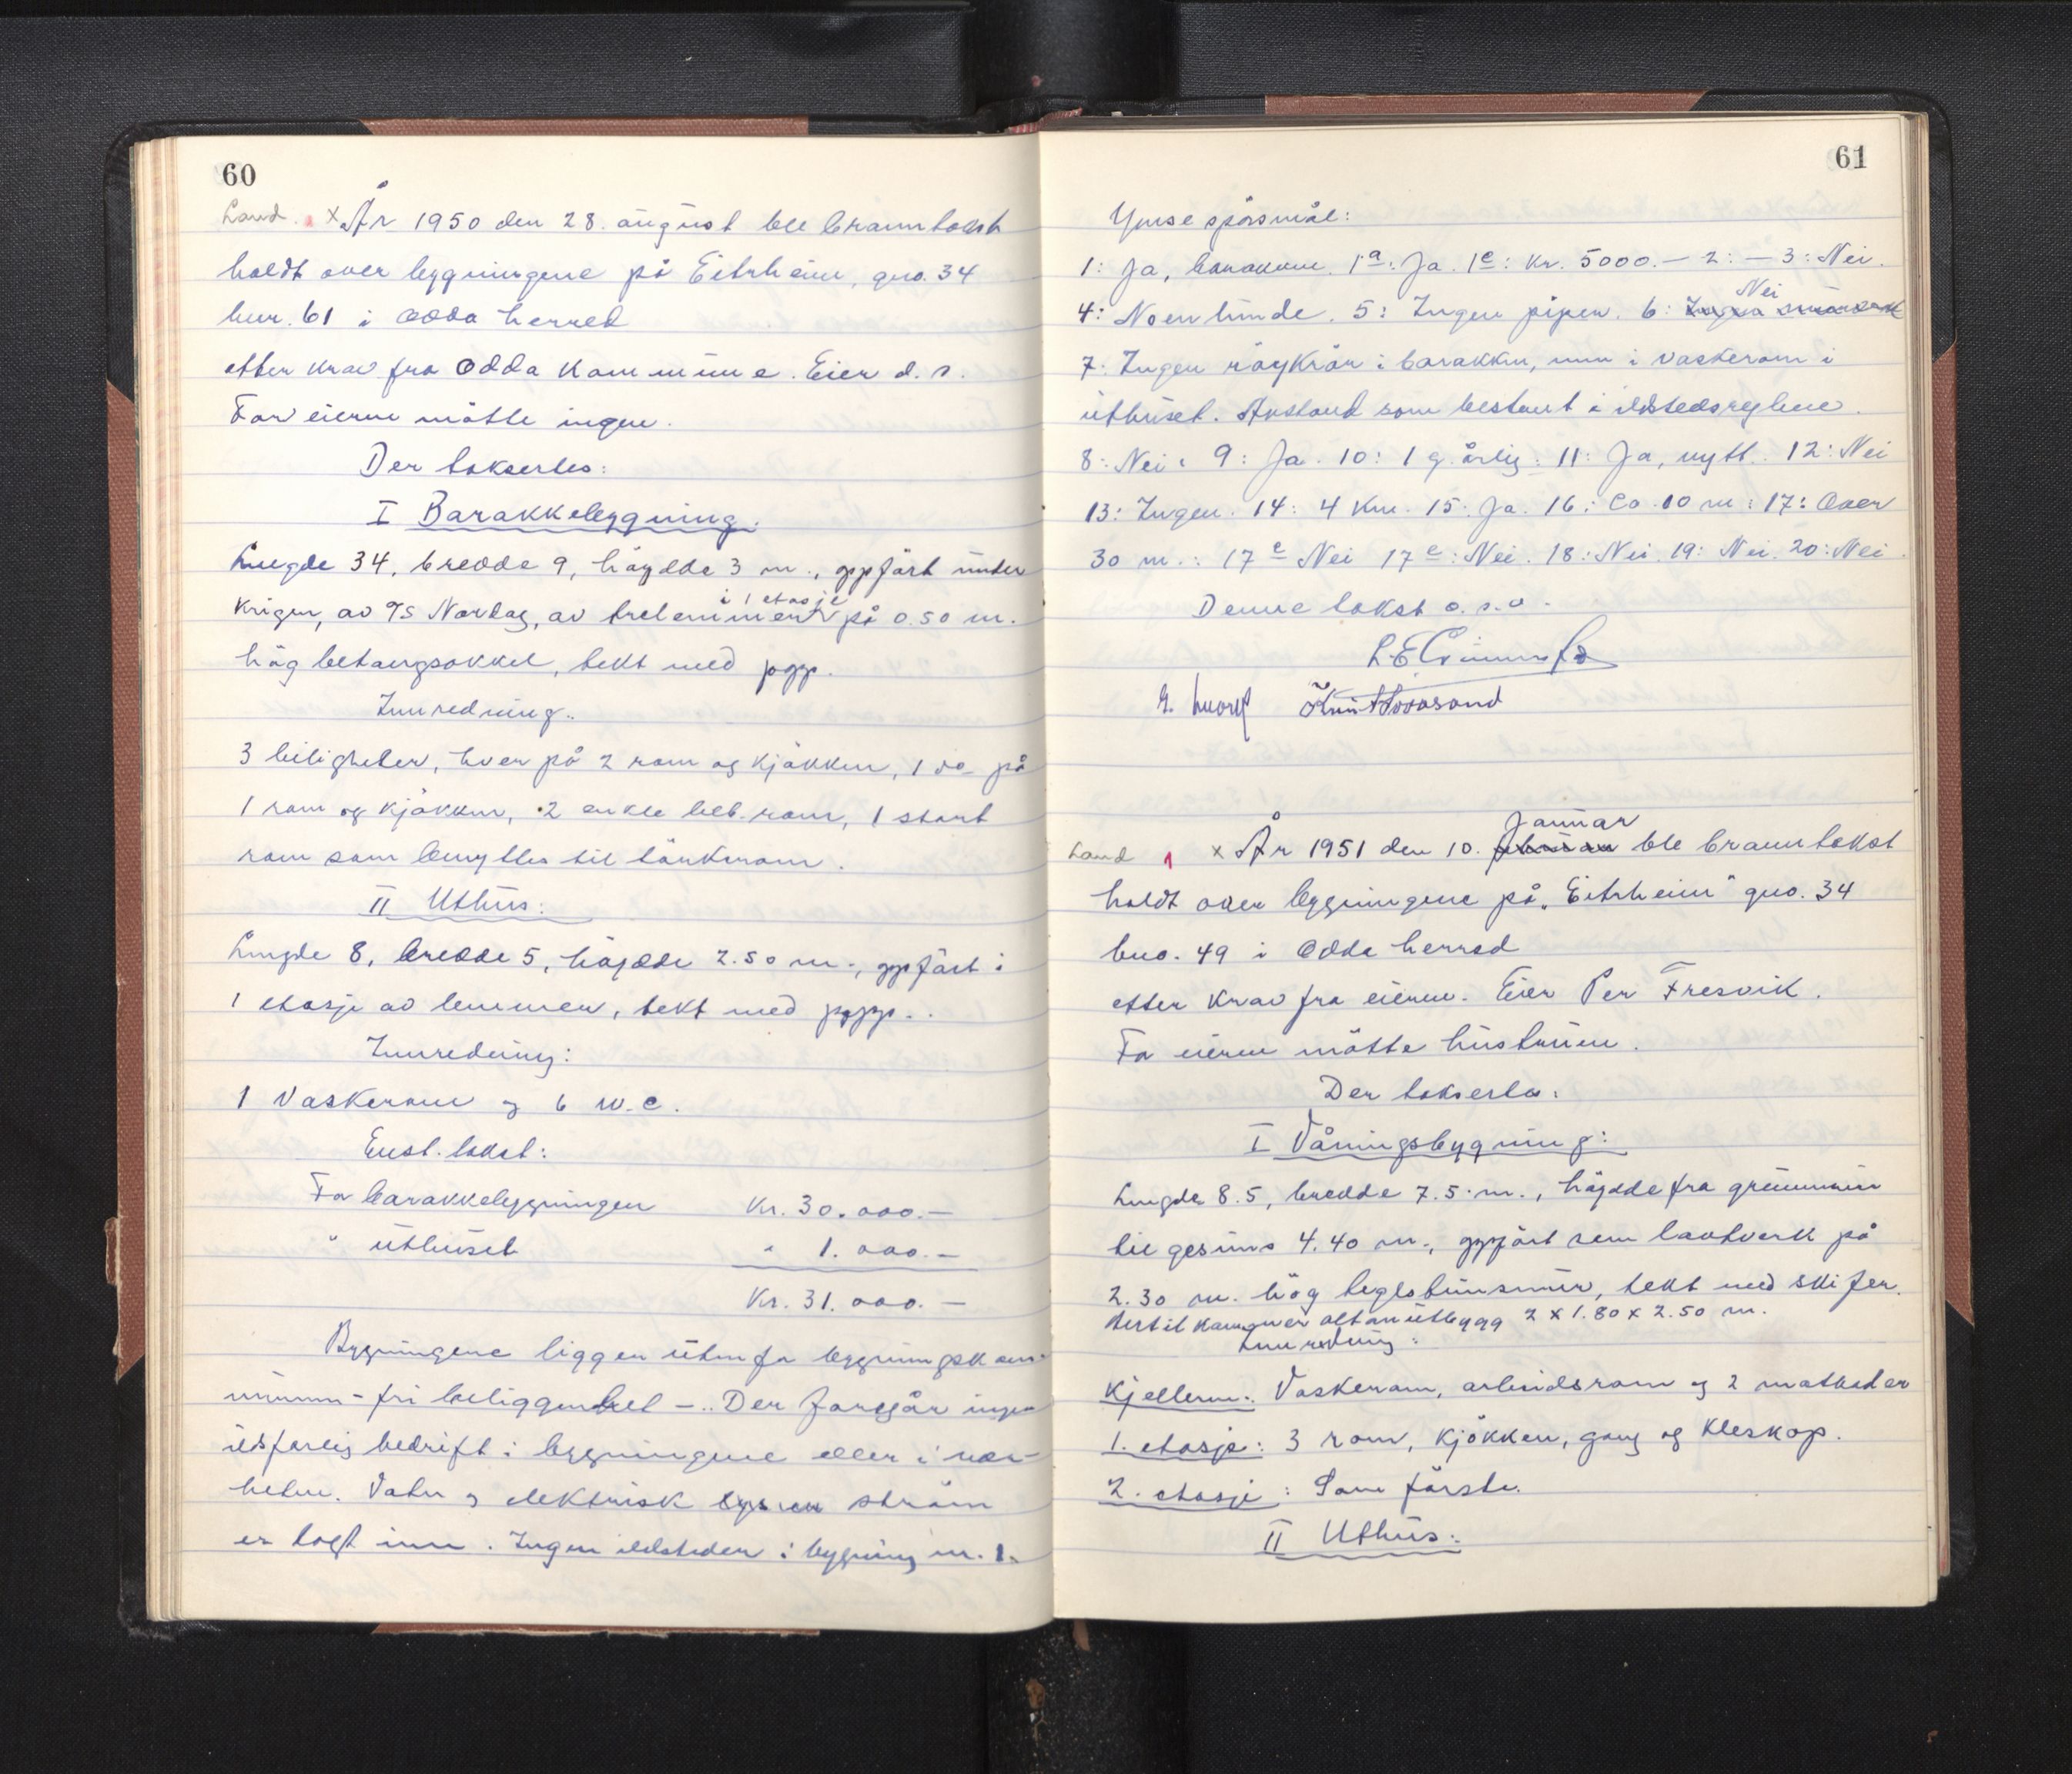 60
Land. x År 1950 den 28. august ble branntakst
holdt over bygningene på Eitrheim, gno. 34
bnr. 61 i Odda herred
etter krav fra Odda Kommune. Eier d. s.
For eieren møtte ingen.
Der taksertes:
I Barakkebygning.
Lengde 34, bredde 9, høydde 3 m., oppført under
i 1 etasje
krigen, av Nordag, av trelemmer på 0.50 m.
høg betongsokkel, tekt med papp.
Innredning.
3 leiligheter, hver på 2 rom og kjøkken, 1 do. på
1 rom og kjøkken, 2 enkle beb. rom, 1 stort
rom som benyttes til tørkerom.
II Uthus:
Lengde 8, bredde 5, høydde 2.50 m., oppført i
1 etasje av lemmer, tekt med papp.
Innredning:
1 Vaskerom og 6 w.c.
Enst. takst:
For barakkebygningen Kr. 30.000.—
" uthuset " 1.000.—
Kr. 31.000.—
Bygningene ligger utenfor
— fri beliggenhet —. Der foregår ingen
ildsfarlig bedrift i bygningene eller i nær-
heten. Vatn og elektrisk strøm
er lagt inn. Ingen ildsteder i bygning nr. 1.
61
Ymse spørsmål:
1: Ja, barakken. 1a: Ja. 1e: Kr. 5000.— 2: — 3: Nei.
Nei
4: Noenlunde. 5: Ingen piper. 6: Ingen
7: Ingen røykrør i barakken, men i vaskerom i
uthuset. Avstand som bestemt i ildstedsreglene.
8: Nei. 9: Ja. 10: 1 g. årlig. 11: Ja, nytt. 12: Nei
13: Ingen. 14: 4 Km. 15: Ja. 16: Ca. 10 m: 17: Over
30 m.: 17c Nei 17e: Nei. 18: Nei. 19: Nei. 20: Nei.
Denne takst o. s. v.
Januar
Land 1 x År 1951 den 10. februar ble branntakst
holdt over bygningene på "Eitrheim" gno. 34
bno. 49 i Odda herred
etter krav fra eieren. Eier Per Fresvik.
For eieren møtte hustruen.
Der takserta:
I Våningsbygning:
Lengde 8.5, bredde 7.5 m., høydde fra grunnmur
til gesims 4.40 m., oppført som laftverk på
2.30 m. høg teglsteinsmur, tekt med skifer.
Dertil kommer altanutbygg 2 x 1.80 x 2.50 m.
Innredning:
Kjelleren: Vaskerom, arbeidsrom og 2 matboder
1. etasje: 3 rom, kjøkken, gang og kleskap.
2. etasje: Som første.
II Uthus: